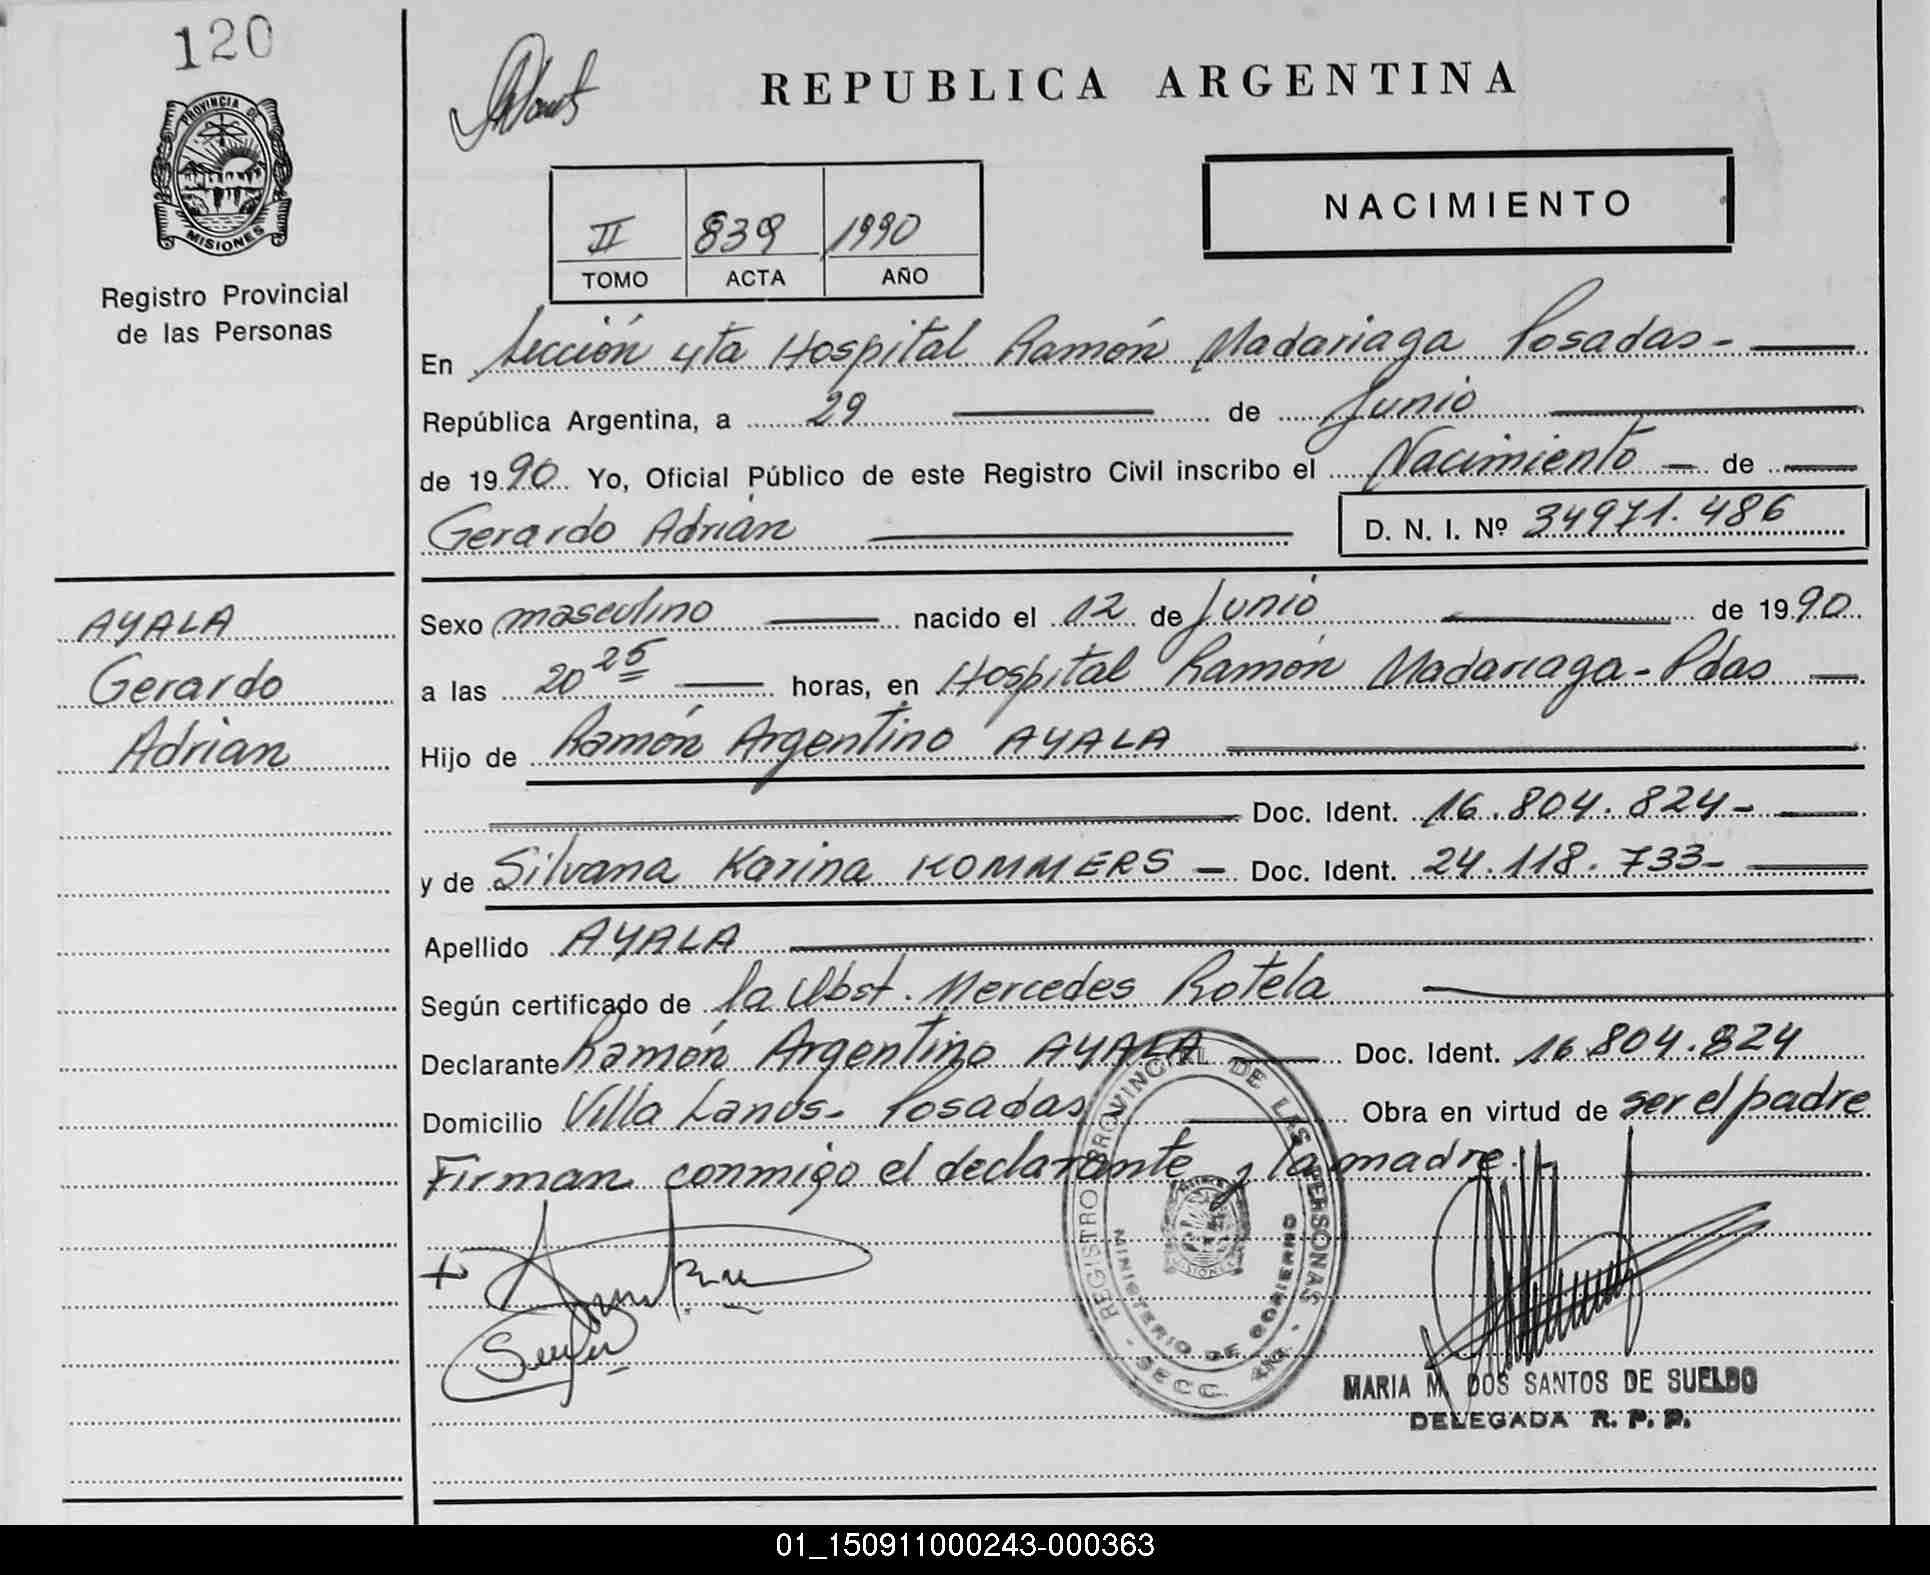 120
PROVINCIA DE
MISIONES
Registro Provincial
de las Personas
REPUBLICA ARGENTINA
II 839 1990
TOMO ACTA AÑO
NACIMIENTO
En Sección 4ta Hospital Ramón Madariaga Posadas-
República Argentina, a 29 de Junio
de 1990 Yo, Oficial Público de este Registro Civil inscribo el Nacimiento - de
Gerardo Adrián D. N. I. Nº 34971.486
AYALA
Gerardo
Adrian
Sexo masculino nacido el 12 de Junio de 1990
a las 20 25 horas, en Hospital Ramón Madariaga - Pdas
Hijo de Ramón Argentino AYALA
Doc. Ident. 16.804.824-
y de Silvana Karina KOMMERS - Doc. Ident. 24.118.733-
Apellido AYALA
Según certificado de la Obst. Mercedes Rotela
Declarante Ramón Argentino AYALA Doc. Ident. 16.804.824
Domicilio Villa Lanus- Posadas Obra en virtud de ser el padre
Firman conmigo el declarante y la madre.
REGISTRO PROVINCIAL DE LAS PERSONAS
MINISTERIO DE GOBIERNO
MISIONES
- SECC. 4ta. -
MARIA M. DOS SANTOS DE SUELDO
DELEGADA R. P. P.
01_150911000243-000363